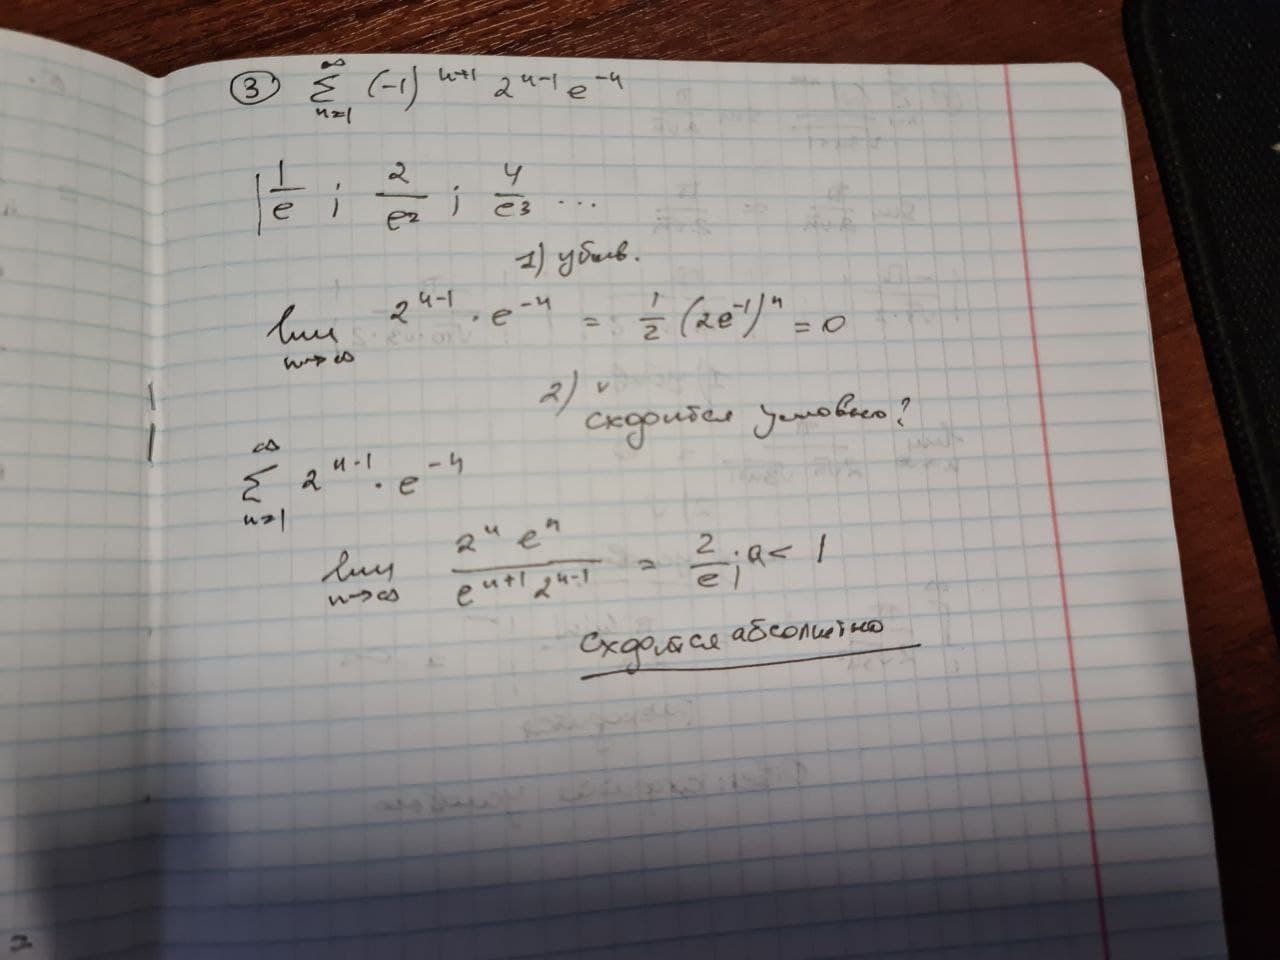 ③ ∞ Σ n=1 (-1)^{n+1} 2^{n-1} e^{-n}
| 1/e ; 2/e² ; 4/e³ ...
1) убыв.
lim n→∞ 2^{n-1} · e^{-n} = 1/2 (2e^{-1})^n = 0
2) сходится условно?
∞ Σ n=1 2^{n-1} · e^{-n}
lim n→∞ 2^n e^n / e^{n+1} 2^{n-1} = 2/e ; a < 1
сходится абсолютно